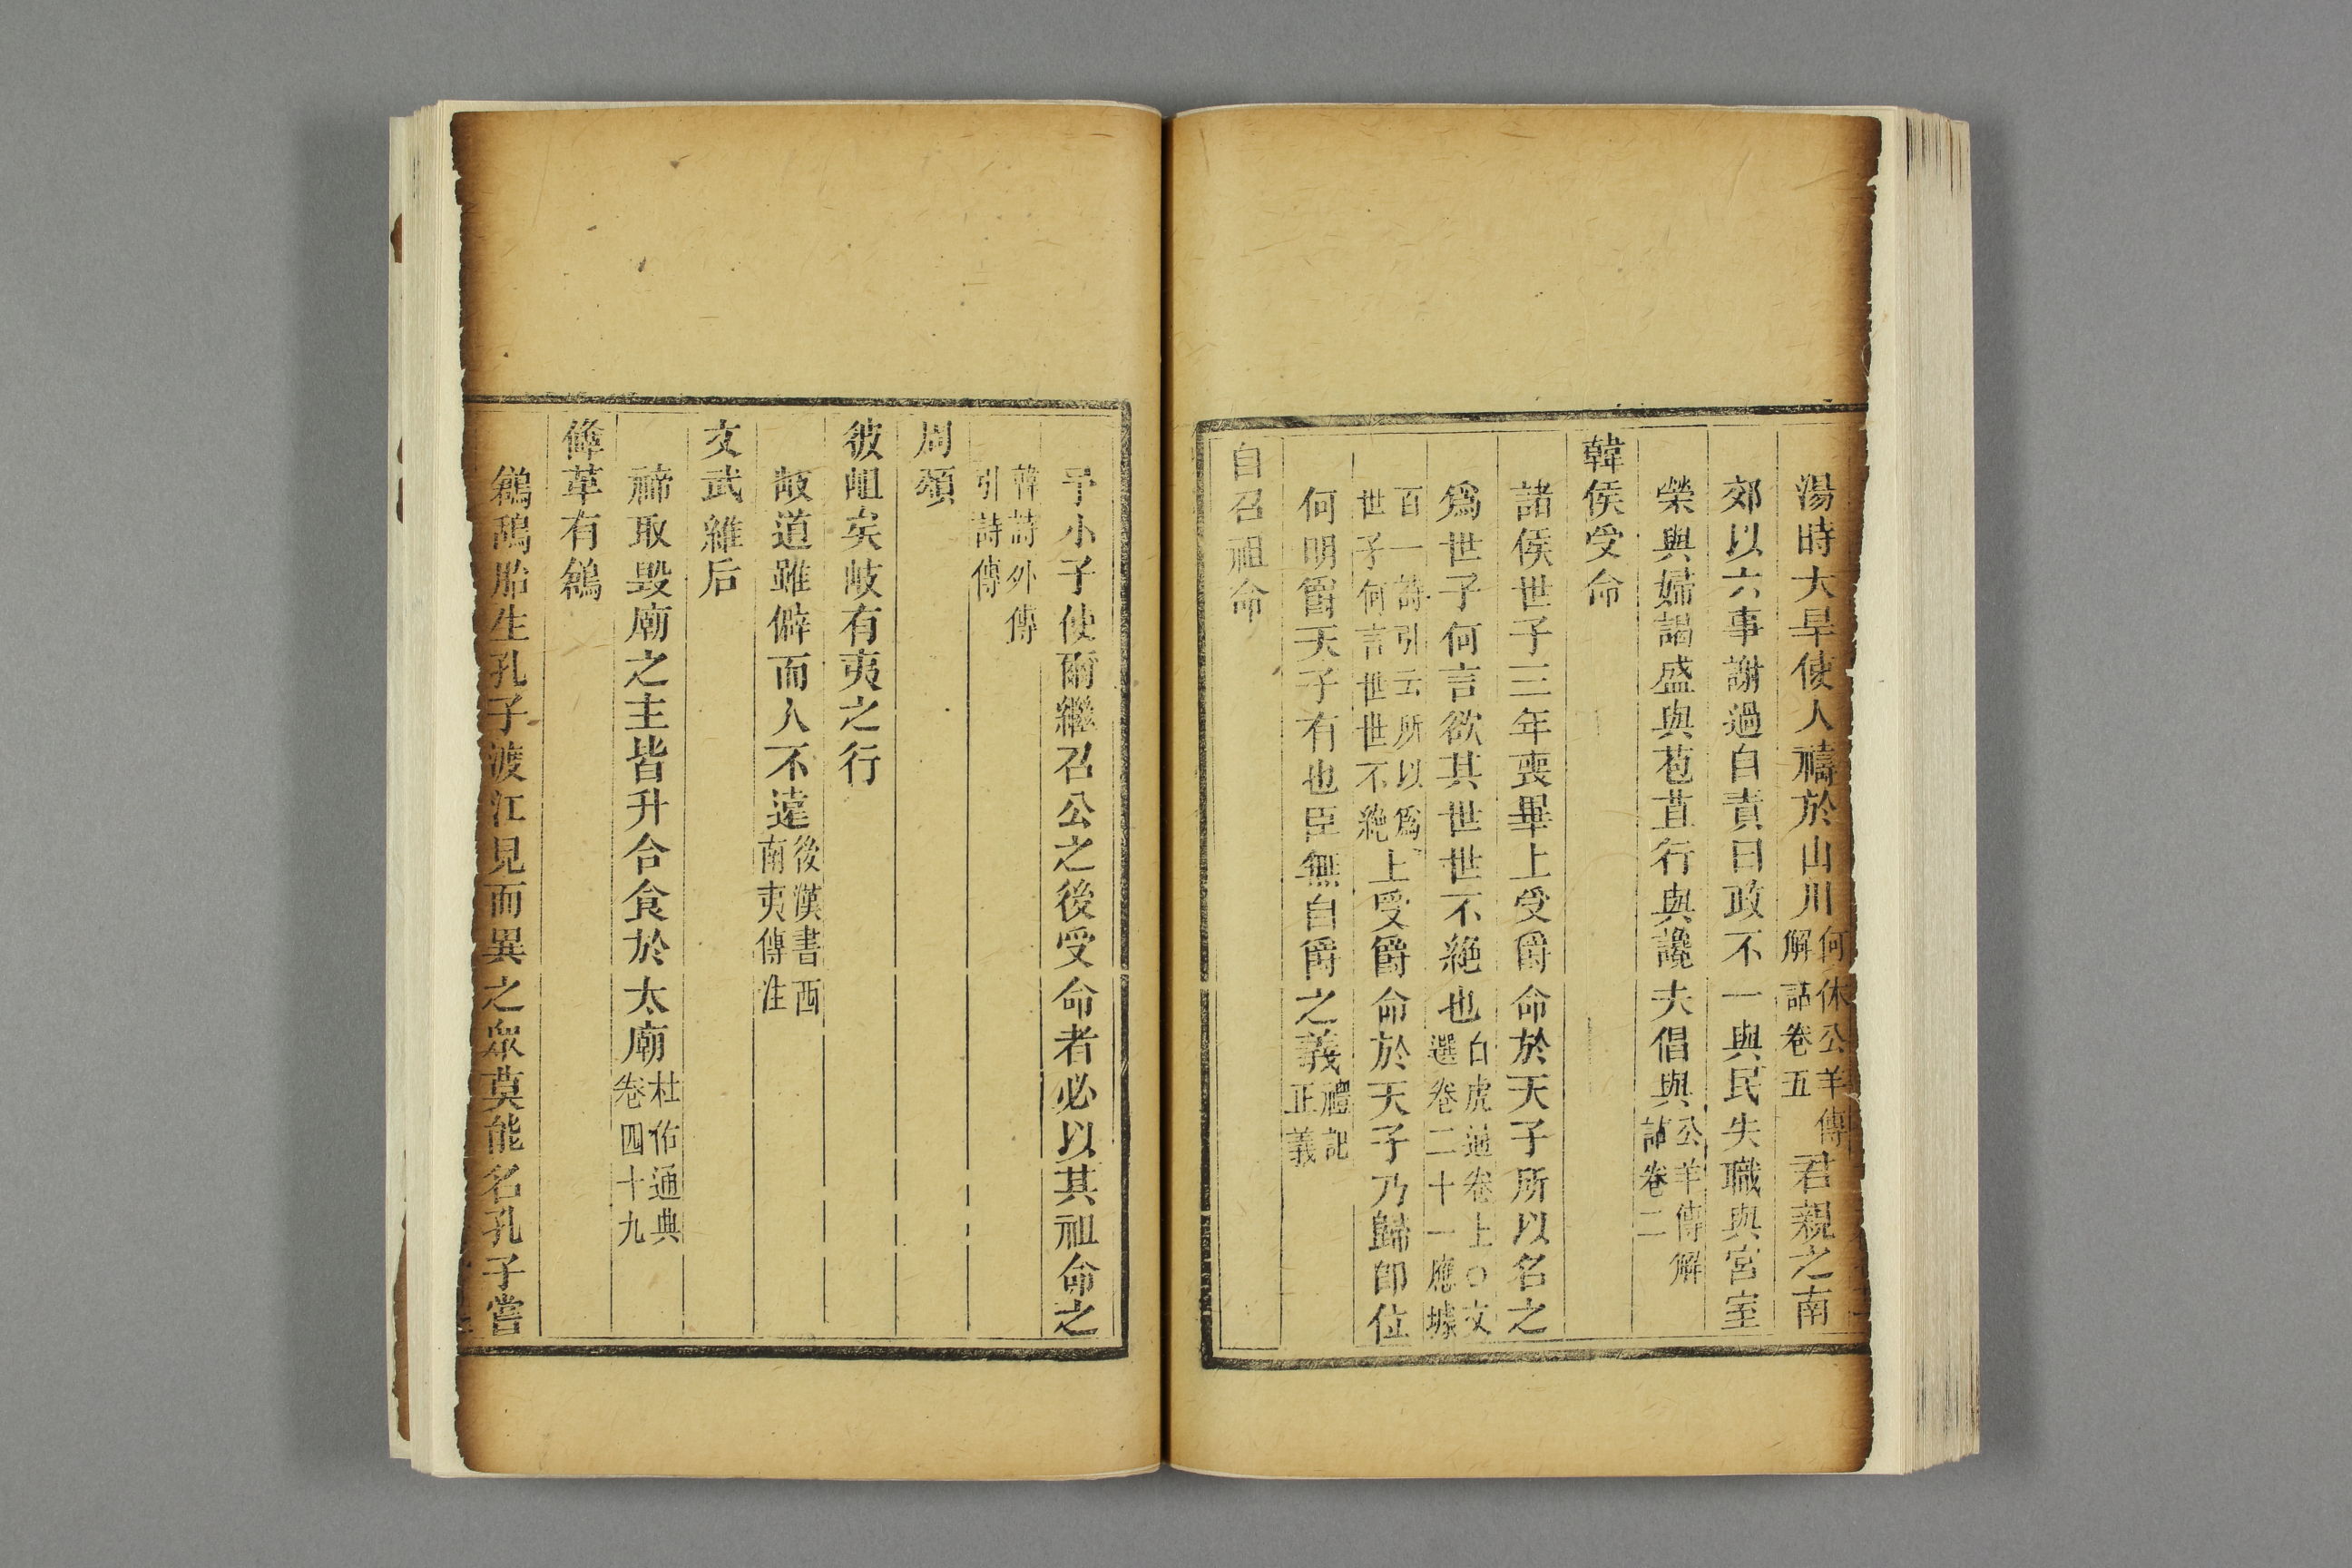 湯時大旱使人禱於山川何休公羊傳解詁卷五君親之南
郊以六事謝過自責曰政不一與民失職與宮室
榮與婦謁盛與苞苴行與讒夫倡與公羊傳解詁卷二
韓侯受命
諸侯世子三年喪畢上受爵命於天子所以名之
爲世子何言欲其世世不絶也白虎通卷上○文選卷二十一應璩
百一詩引云所以爲世子何言世世不絶上受爵命於天子乃歸卽位
何明爵天子有也臣無自爵之義禮記正義
自召祖命
予小子使爾繼召公之後受命者必以其祖命之
韓詩外傳引詩傳
周頌
彼岨矣岐有夷之行
岐道雖僻而人不遠後漢書西南夷傳注
文武維后
禘取毀廟之主皆升合食於太廟杜佑通典卷四十九
鞗革有鶬
鶬鴰胎生孔子渡江見而異之衆莫能名孔子嘗